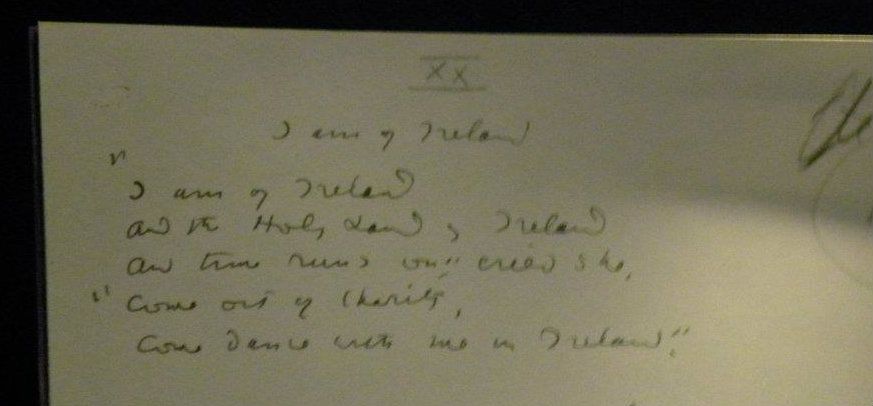 XX
I am of Ireland
"I am of Ireland
And the Holy Land of Ireland
And time runs on" cried she,
"Come out of Charity,
Come dance with me in Ireland".